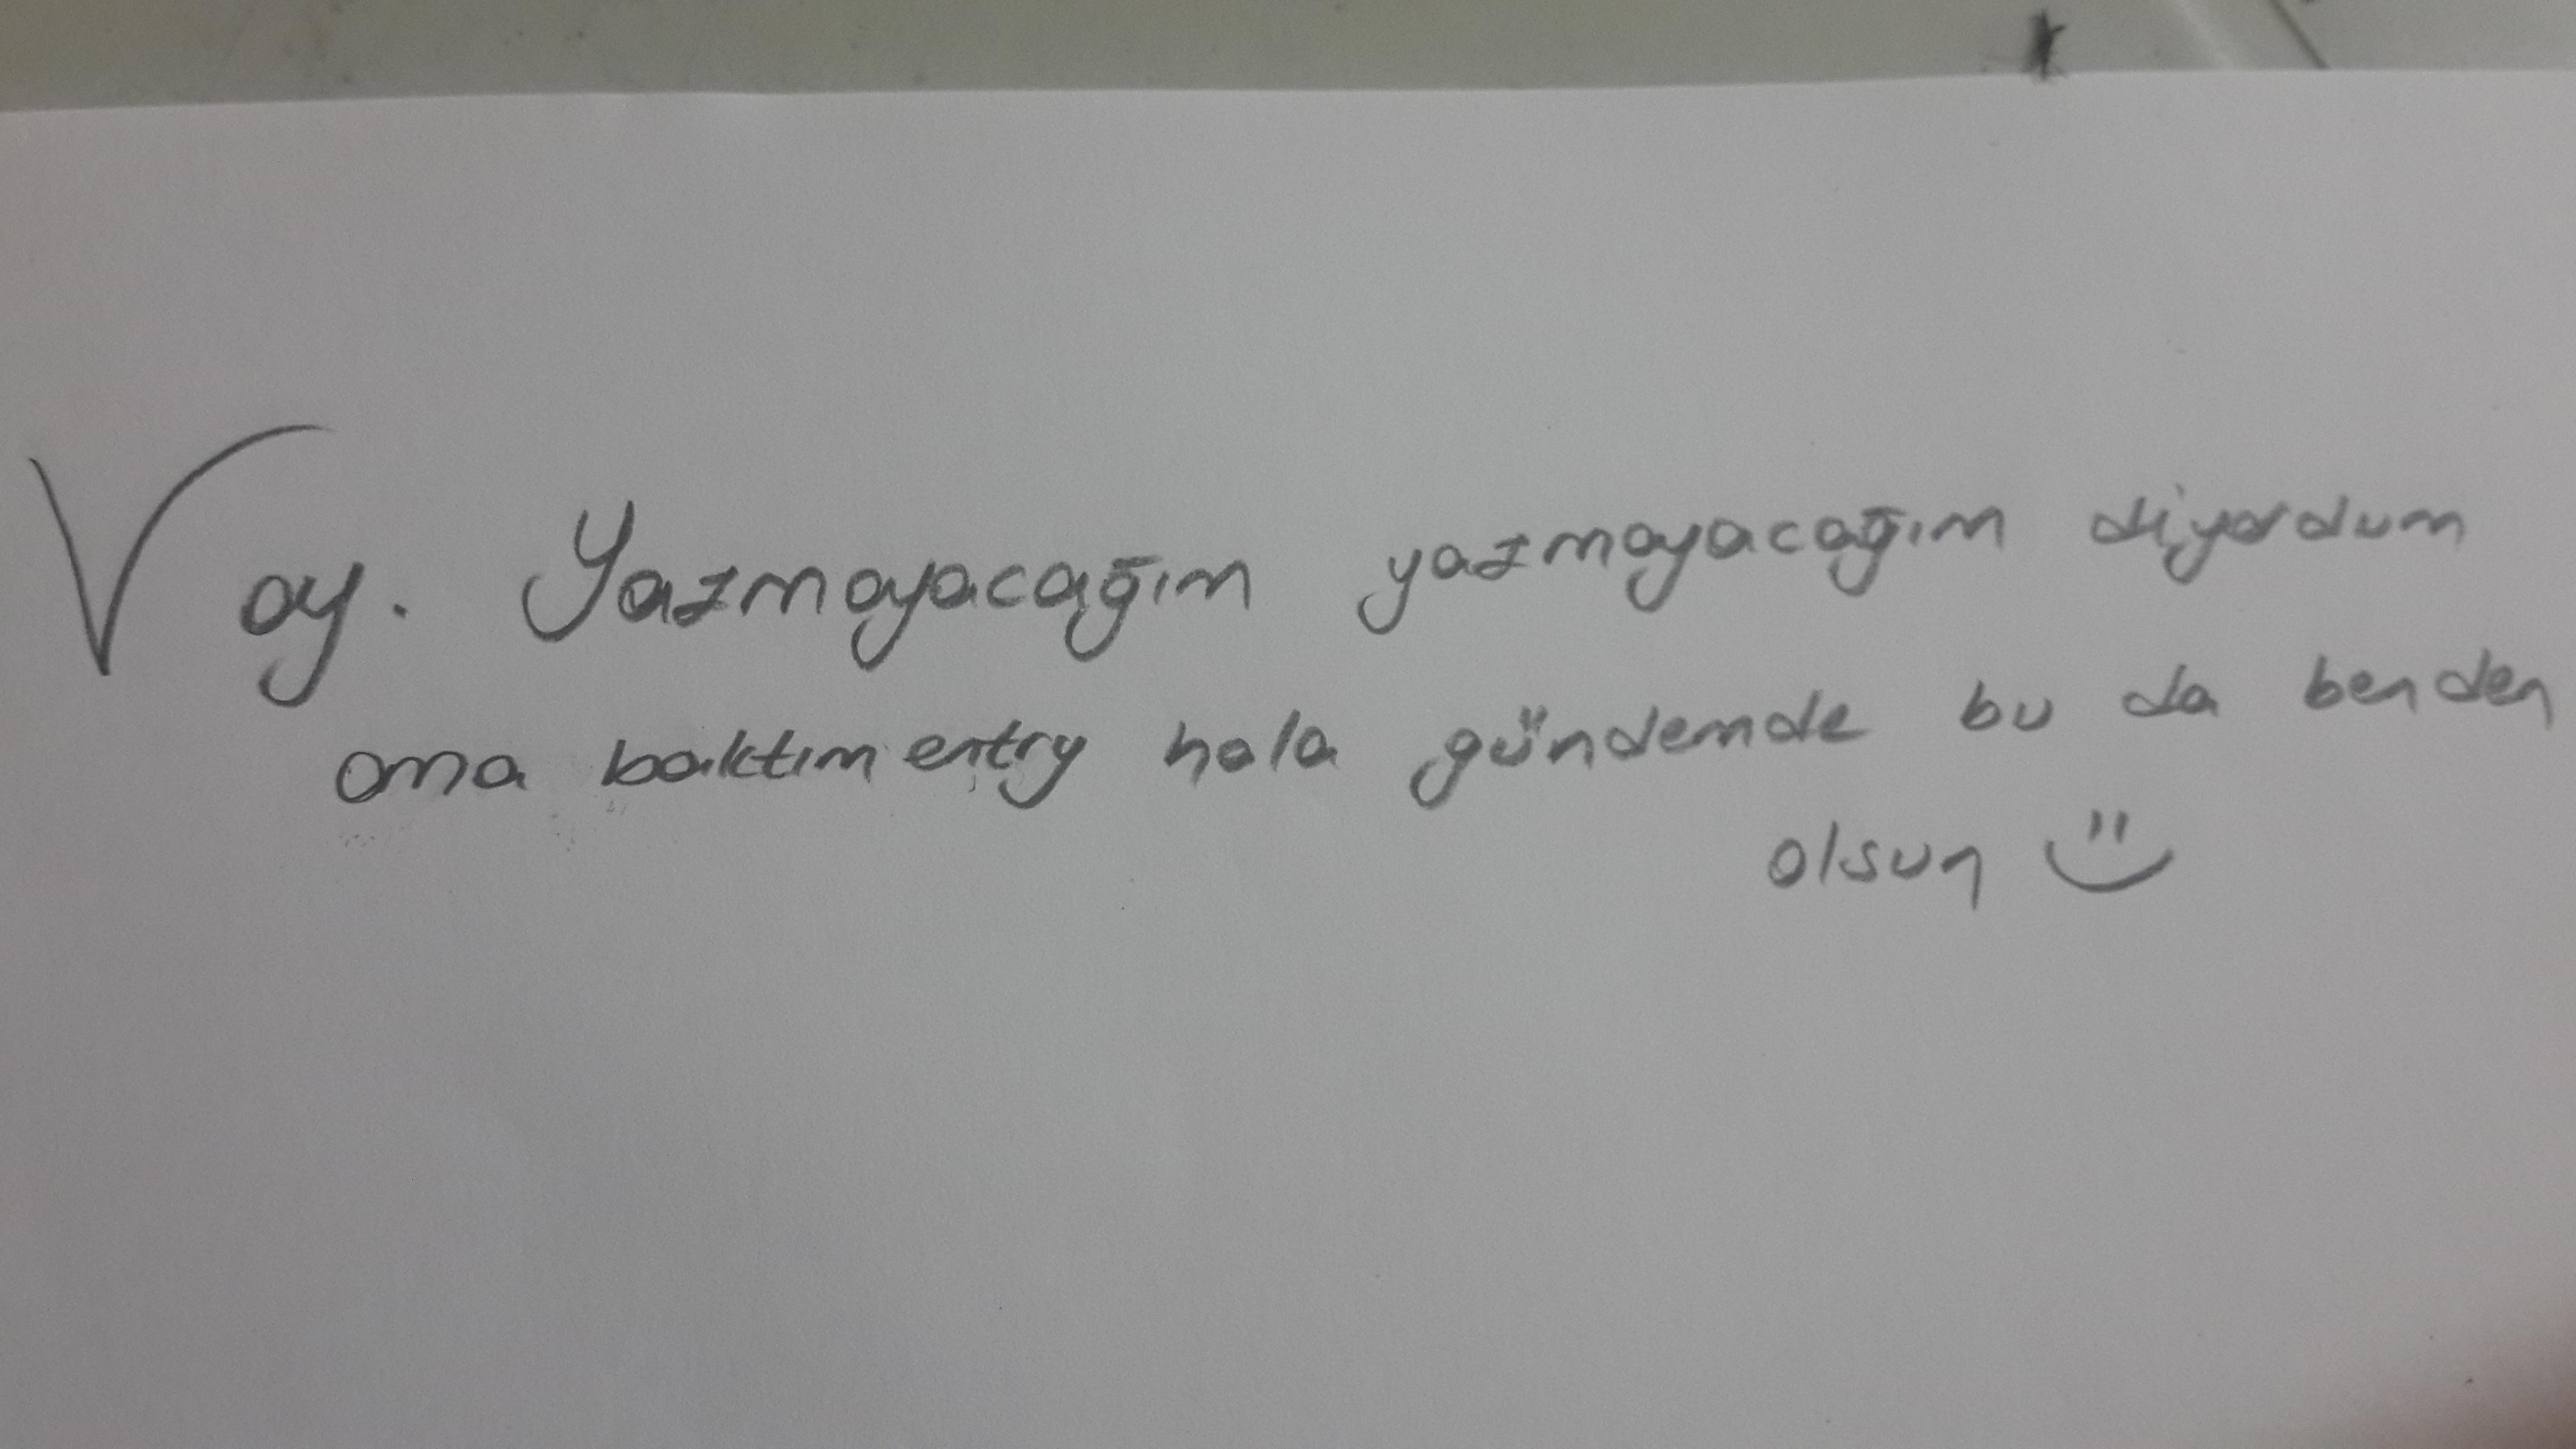 Vay. Yazmayacağım yazmayacağım diyordum
ama baktım entry hala gündemde bu da benden
olsun :)